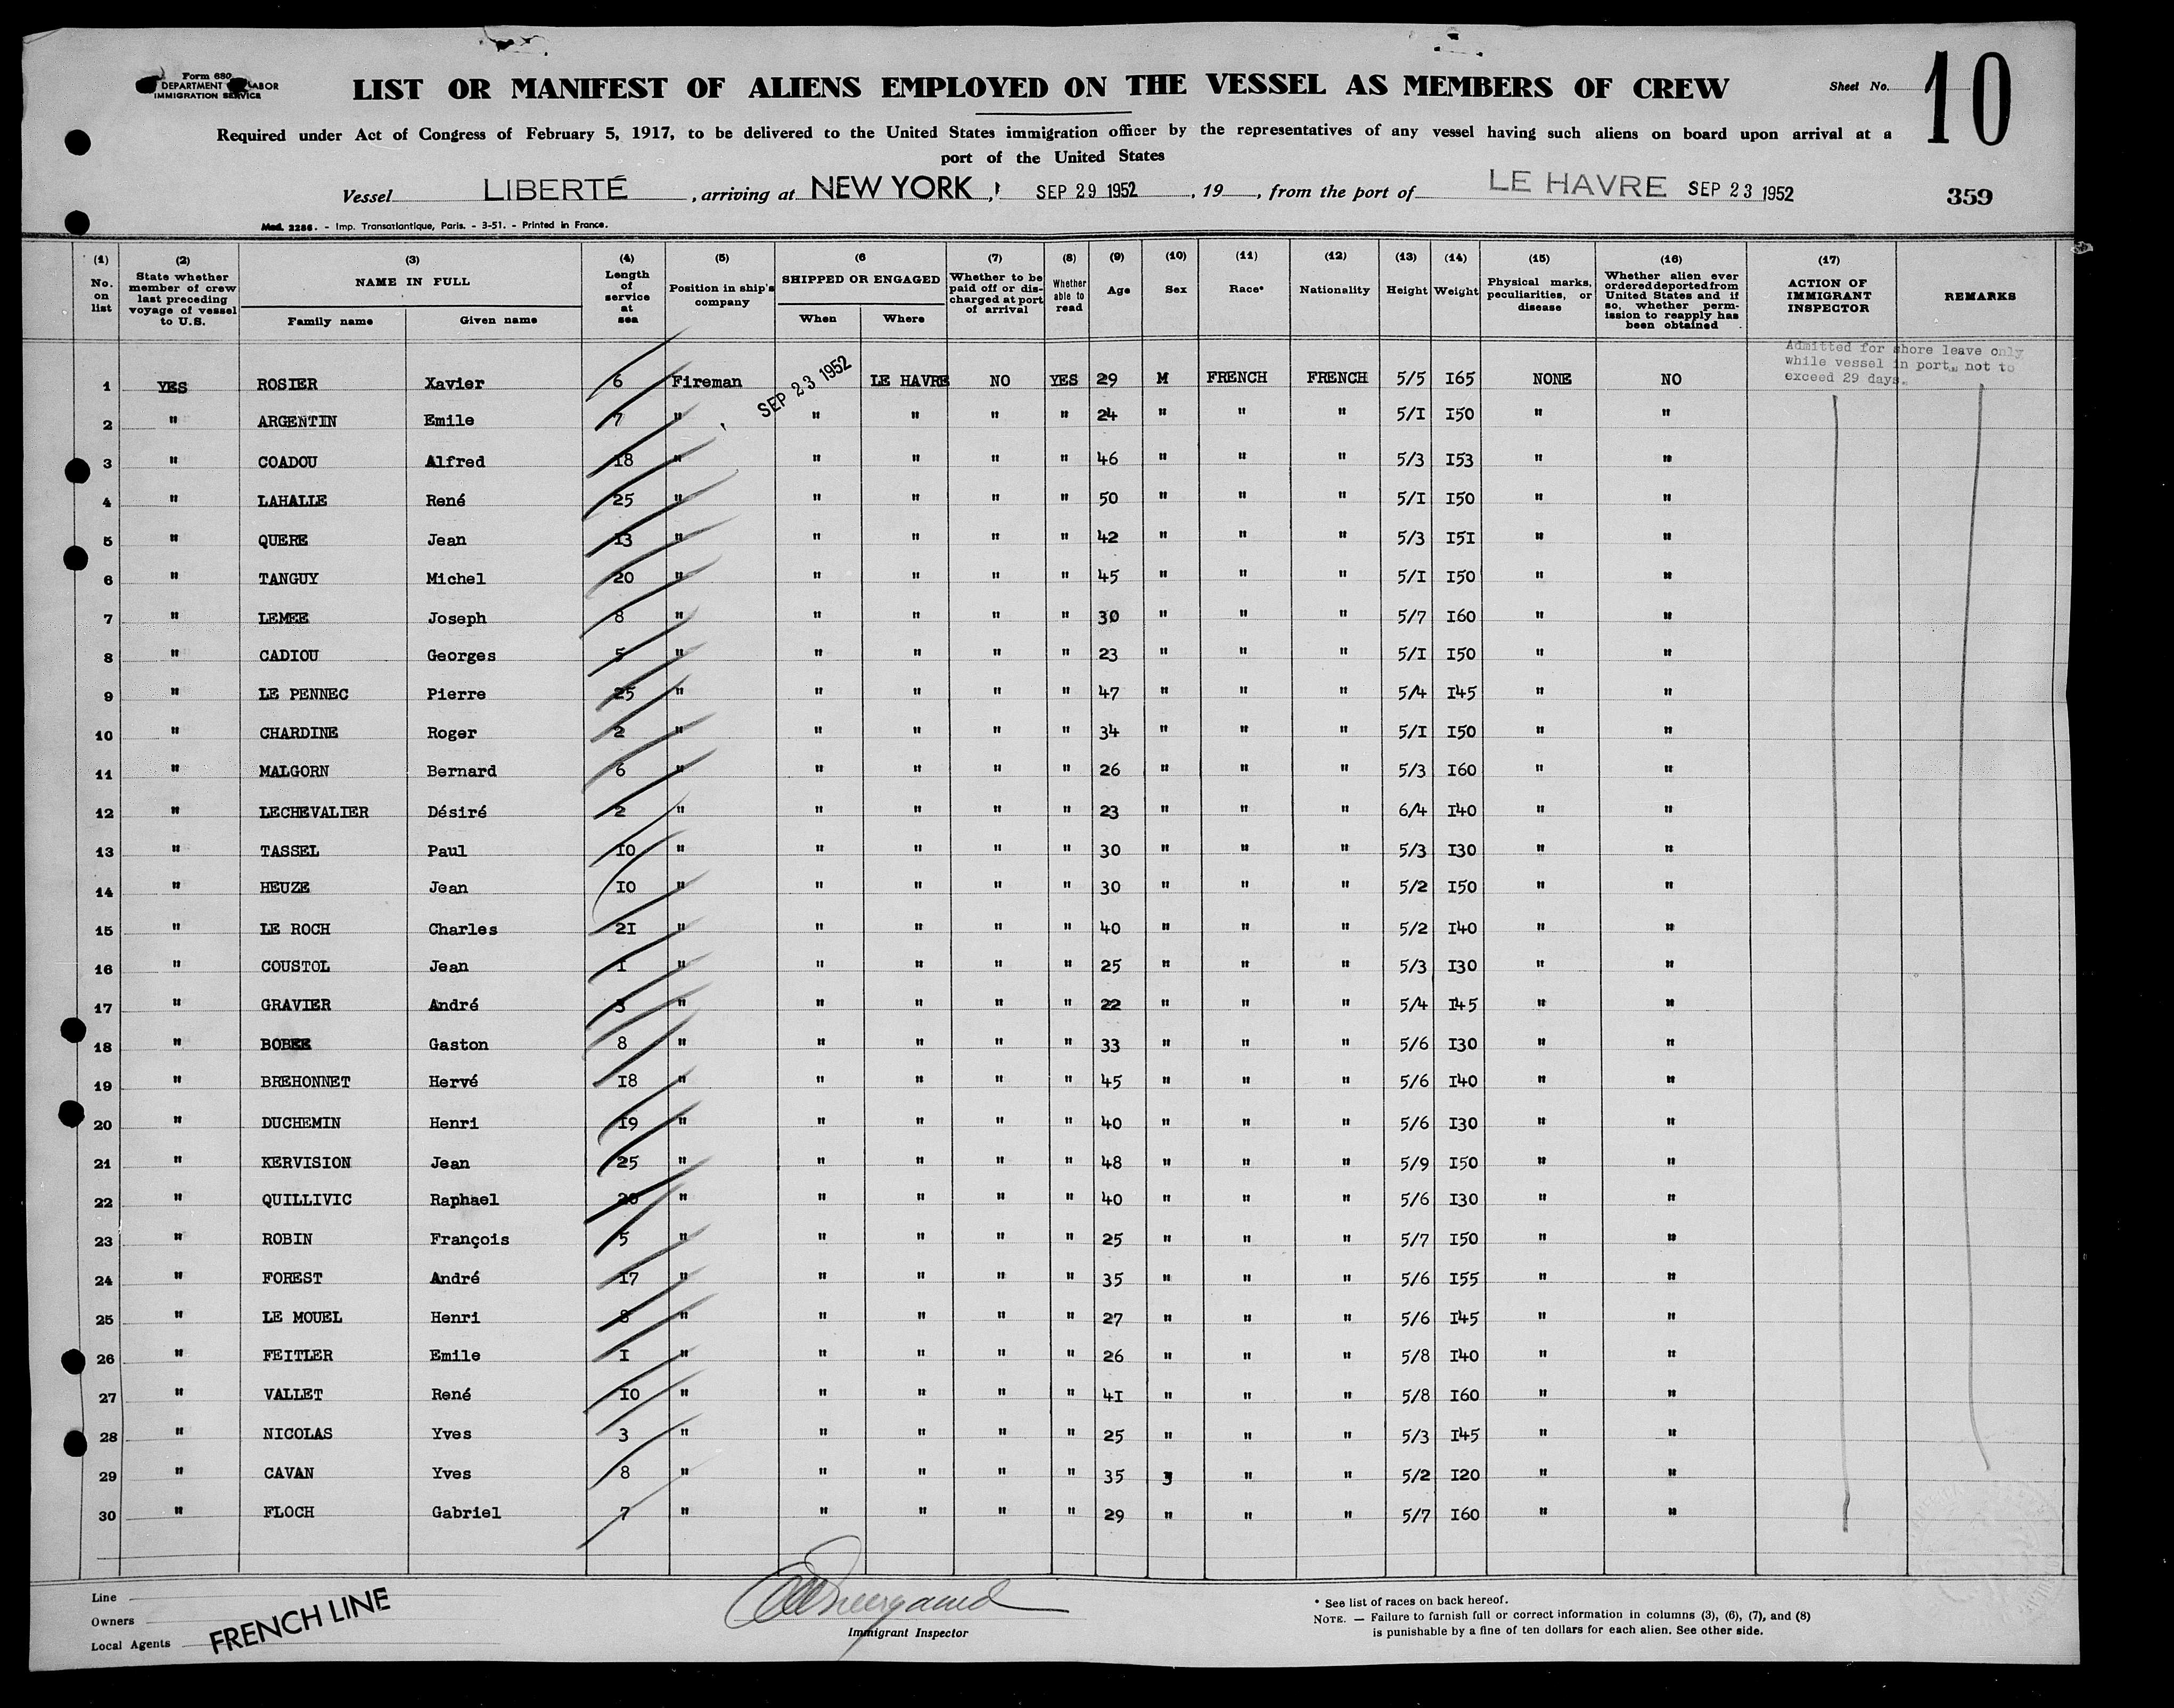 Form 680
DEPARTMENT LABOR
IMMIGRATION SERVICE
LIST OR MANIFEST OF ALIENS EMPLOYED ON THE VESSEL AS MEMBERS OF CREW
Sheet No. 10
Required under Act of Congress of February 5, 1917, to be delivered to the United States immigration officer by the representatives of any vessel having such aliens on board upon arrival at a
port of the United States
Vessel LIBERTÉ, arriving at NEW YORK, SEP 29 1952, 19, from the port of LE HAVRE SEP 23 1952
359
Mod. 2286. - Imp. Transatlantique, Paris. - 3-51. - Printed in France.
(1) No. on list (2) State whether member of crew last preceding voyage of vessel to U.S. (3) NAME IN FULL Family name Given name (4) Length of service at sea (5) Position in ship's company (6 SHIPPED OR ENGAGED When Where (7) Whether to be paid off or discharged at port of arrival (8) Whether able to read (9) Age (10) Sex (11) Race* (12) Nationality (13) Height (14) Weight (15) Physical marks, peculiarities, or disease (16) Whether alien ever ordered deported from United States and if so, whether permission to reapply has been obtained (17) ACTION OF IMMIGRANT INSPECTOR REMARKS
Admitted for shore leave only
while vessel in port, not to
exceed 29 days.
1 YES ROSIER Xavier 6 Fireman SEP 23 1952 LE HAVRE NO YES 29 M FRENCH FRENCH 5/5 I65 NONE NO
2 " ARGENTIN Emile 7 " " " " " 24 " " " 5/I I50 " "
3 " COADOU Alfred I8 " " " " " 46 " " " 5/3 I53 " "
4 " LAHALLE René 25 " " " " " 50 " " " 5/I I50 " "
5 " QUERE Jean I3 " " " " " 42 " " " 5/3 I5I " "
6 " TANGUY Michel 20 " " " " " 45 " " " 5/I I50 " "
7 " LEMEE Joseph 8 " " " " " 30 " " " 5/7 I60 " "
8 " CADIOU Georges 5 " " " " " 23 " " " 5/I I50 " "
9 " LE PENNEC Pierre 25 " " " " " 47 " " " 5/4 I45 " "
10 " CHARDINE Roger 2 " " " " " 34 " " " 5/I I50 " "
11 " MALGORN Bernard 6 " " " " " 26 " " " 5/3 I60 " "
12 " LECHEVALIER Désiré 2 " " " " " 23 " " " 6/4 I40 " "
13 " TASSEL Paul I0 " " " " " 30 " " " 5/3 I30 " "
14 " HEUZE Jean I0 " " " " " 30 " " " 5/2 I50 " "
15 " LE ROCH Charles 2I " " " " " 40 " " " 5/2 I40 " "
16 " COUSTOL Jean I " " " " " 25 " " " 5/3 I30 " "
17 " GRAVIER André 3 " " " " " 22 " " " 5/4 I45 " "
18 " BOBEE Gaston 8 " " " " " 33 " " " 5/6 I30 " "
19 " BREHONNET Hervé I8 " " " " " 45 " " " 5/6 I40 " "
20 " DUCHEMIN Henri I9 " " " " " 40 " " " 5/6 I30 " "
21 " KERVISION Jean 25 " " " " " 48 " " " 5/9 I50 " "
22 " QUILLIVIC Raphael 20 " " " " " 40 " " " 5/6 I30 " "
23 " ROBIN François 5 " " " " " 25 " " " 5/7 I50 " "
24 " FOREST André I7 " " " " " 35 " " " 5/6 I55 " "
25 " LE MOUEL Henri 8 " " " " " 27 " " " 5/6 I45 " "
26 " FEITLER Emile I " " " " " 26 " " " 5/8 I40 " "
27 " VALLET René I0 " " " " " 4I " " " 5/8 I60 " "
28 " NICOLAS Yves 3 " " " " " 25 " " " 5/3 I45 " "
29 " CAVAN Yves 8 " " " " " 35 " " 5/2 I20 " "
30 " FLOCH Gabriel 7 " " " " " 29 " " " 5/7 I60 " "
Line
Owners
Local Agents
FRENCH LINE
Immigrant Inspector
* See list of races on back hereof.
NOTE. — Failure to furnish full or correct information in columns (3), (6), (7), and (8)
is punishable by a fine of ten dollars for each alien. See other side.